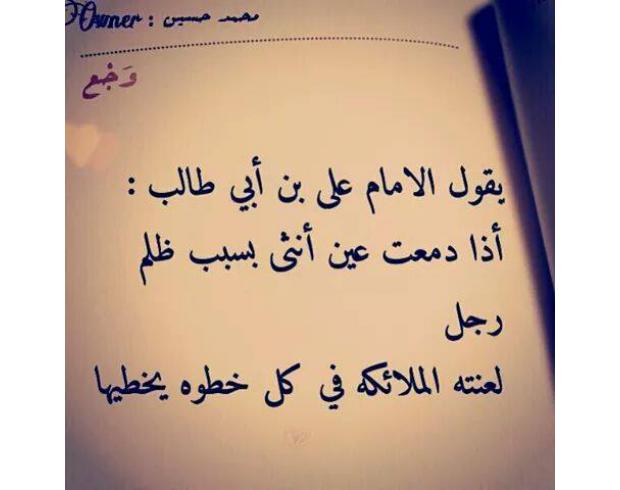 Owner : محمد حسين
وَجَع
يقول الامام على بن أبي طالب :
أذا دمعت عين أنثى بسبب ظلم
رجل
لعنته الملائكه في كل خطوه يخطيها